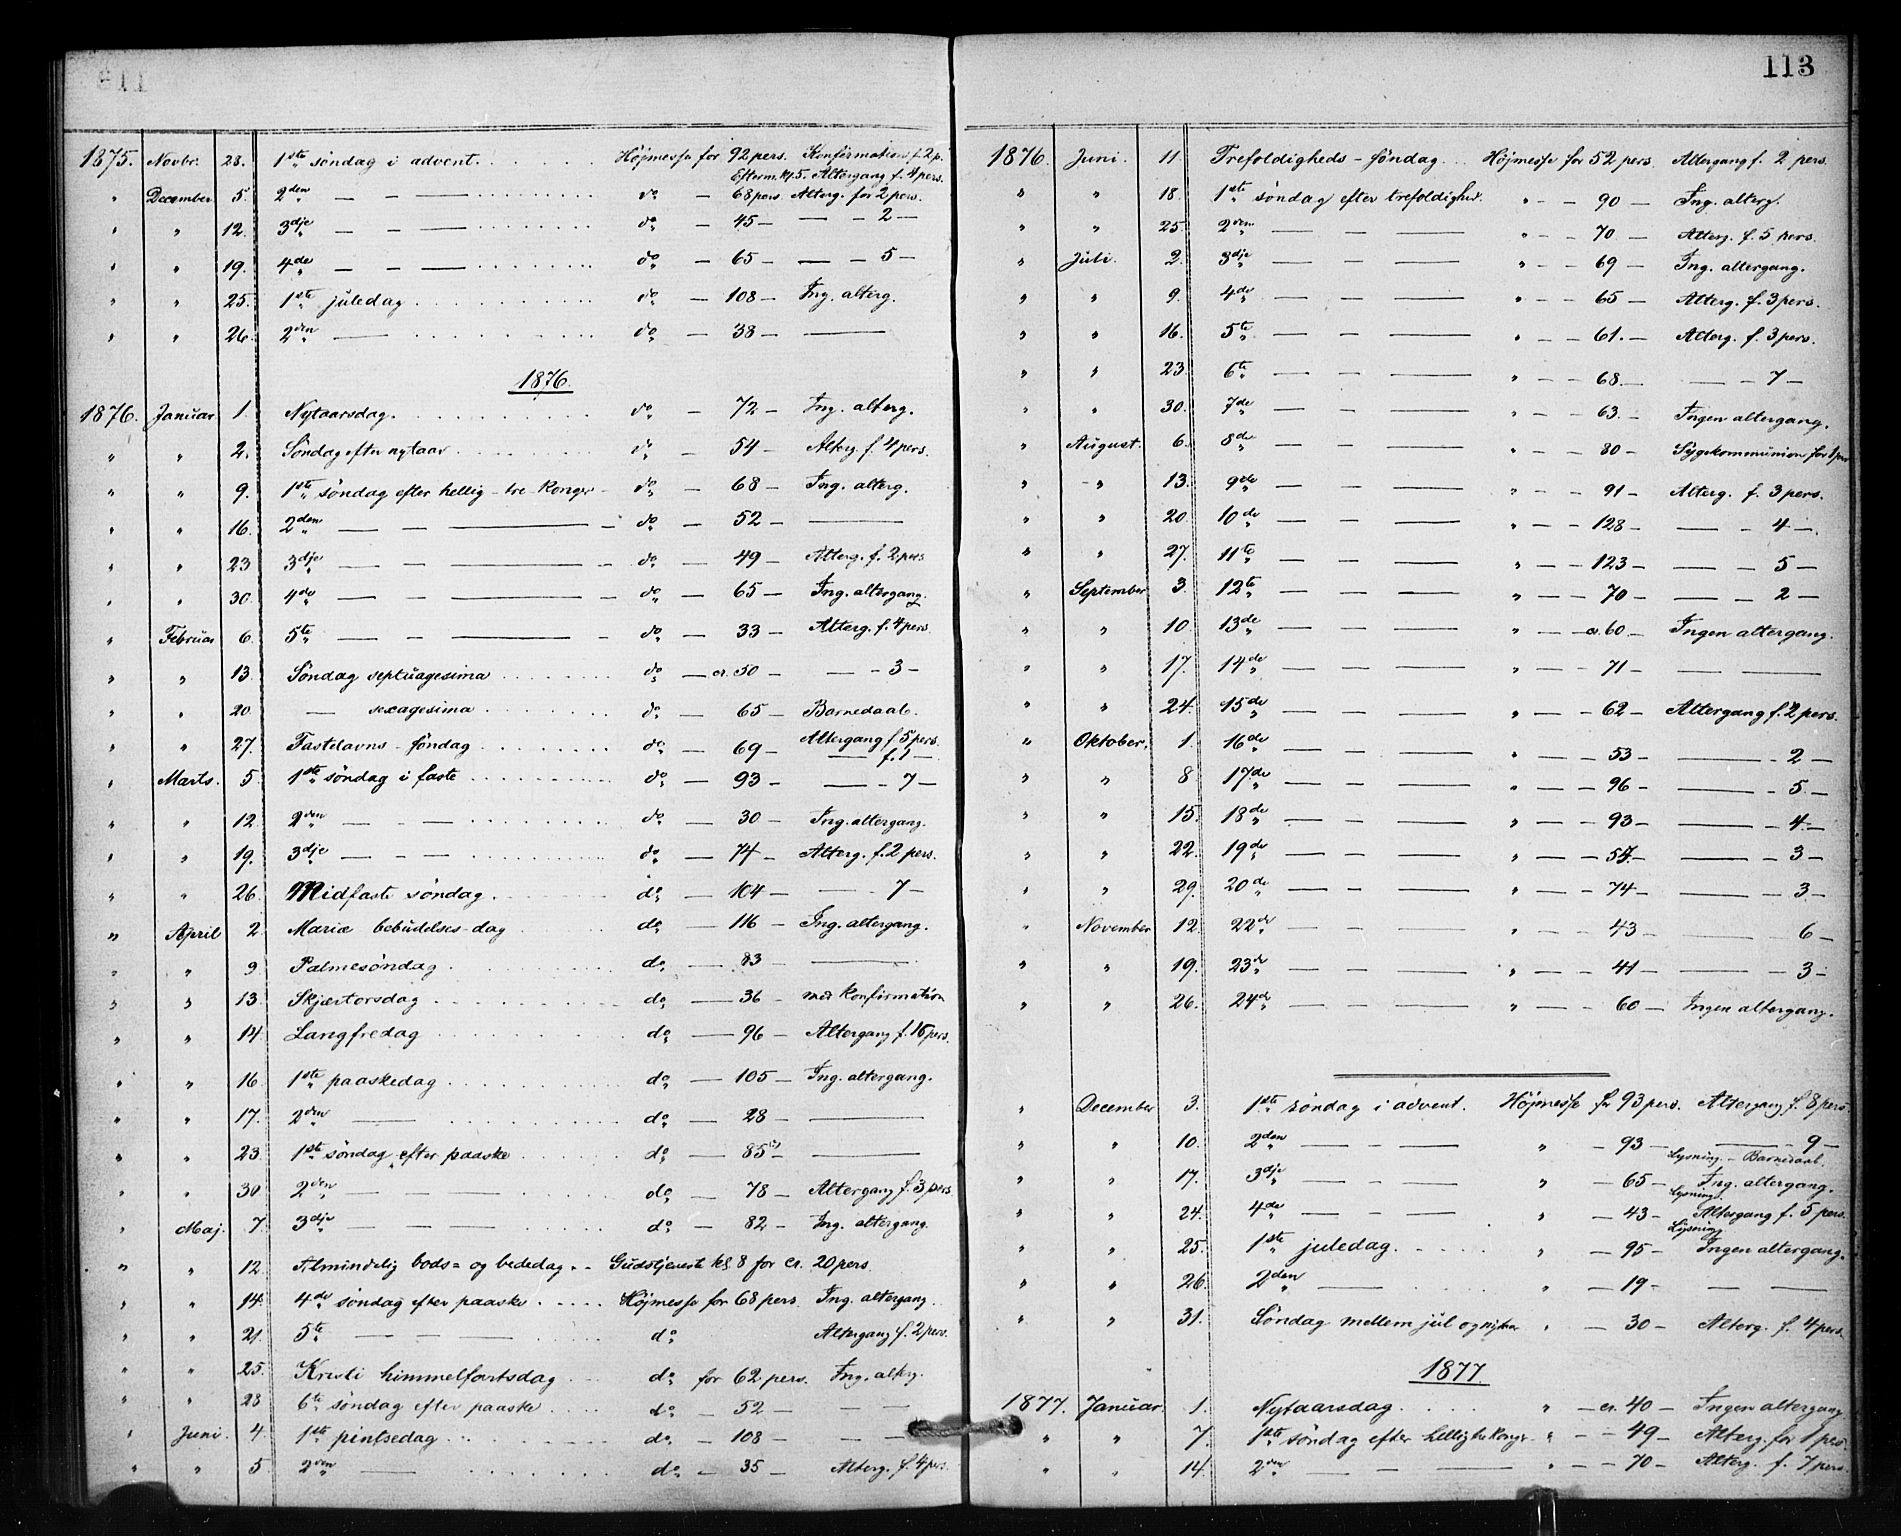 1875. Novbr. 28. 1ste søndag i advent. . . . . . . Højmesse for 92 pers. Konfirmation f. 2 p.
Efterm. kl. 5. Altergang f. 4 pers.
" December 5. 2den — — — . . . . . . . do — 68 pers. Alterg. for 2 pers.
" " 12. 3dje — — — . . . . . . . do — 45 — — — 2 —
" " 19. 4de — — — . . . . . . . do — 65 — — — 5 —
" " 25. 1ste juledag . . . . . . . do — 108 — Ing. alterg.
" " 26. 2den — . . . . . . . do — 38 — ——
1876.
1876. Januar 1. Nytaarsdag. . . . . . . . do — 72 — Ing. alterg.
" " 2. Søndag efter nytaar . . . . . . . do — 54 — Alterg. f. 4 pers.
" " 9. 1ste søndag efter hellig-tre konger — do — 68 — Ing. alterg.
" " 16. 2den — — —— — do — 52 — ——
" " 23 3dje — — —— — do — 49 — Alterg. f. 2 pers
" " 30. 4de — — —— — do — 65 — Ing. altergang.
" Februar 6. 5te — — —— — do — 33 — Alterg. f. 4 pers.
" " 13. Søndag septuagesima . . . . . . . do — cr. 50 — — — 3 —
" " 20. — sexagesima . . . . . . . do — 65 — Barnedaab.
" " 27. Fastelavns-søndag . . . . . . . do — 69 — Altergang f. 5 pers.
— f. 1 —
" Marts. 5. 1ste søndag i faste . . . . . . . do — 93 — — — 7 —
" " 12. 2den — — — . . . . . . . do — 30 — Ing. altergang.
" " 19. 3dje — — — . . . . . . . do — 74 — Alterg. f. 2 pers.
" " 26. Midfaste søndag . . . . . . . do — 104 — — 7 —
" April 2. Mariæ bebudelses-dag . . . . . do — 116 — Ing. altergang.
" " 9 Palmesøndag . . . . . . . do — 83 — ——
" " 13. Skjærtorsdag . . . . . . . do — 36 — med konfirmation
" " 14. Langfredag . . . . . . . do — 96 — Altergang f. 16 pers.
" " 16. 1ste paaskedag . . . . . . . do — 105 — Ing. altergang.
" " 17. 2den — . . . . . . . do — 28 — ——
" " 23. 1ste søndag efter paaske . . . . . . . do — 85(?) — ——
" " 30 2den — — — . . . . . . . do — 78 — Altergang f. 3 pers.
" Maj. 7. 3dje — — — . . . . . . . do — 82 — Ing. altergang.
" " 12. Almindelig bods= og bededag. - Gudstjeneste kl. 8 for cr. 20 pers.
" " 14. 4de søndag efter paaske . . . . . Højmesse for 68 pers. Ing. altergang.
" " 21 5te — — — . . . . . do Altergang f. 2 pers.
" " 25. Kristi himmelfartsdag . . . do for 62 pers. Ing. alterg.
" " 28 6te søndag efter paaske . . . . do — 52 — — —
" Juni. 4. 1ste pintsedag . . . . . . . do — 108 — — —
" " 5. 2den — . . . . . . . do — 35 — Alterg. f. 4 pers.
113
1876. Juni. 11. Trefoldigheds-søndag . . . Højmesse for 52 pers. Altergang f. 2 pers.
" " 18. 1ste søndag efter trefoldighed. " — — 90 — Ing. alterg.
" " 25. 2den — — — " — — 70 — Alterg. f. 5 pers.
" Juli. 2. 3dje — — — " — — 69 — Ing. altergang.
" " 9. 4de — — — " — — 65 — Alterg. f. 3 pers.
" " 16. 5te — — — " — — 61. — Alterg. f. 3 pers.
" " 23. 6te — — — " — — 68. — — — 7 —
" " 30. 7de — — — " — — 63. — Ingen altergang.
" August. 6. 8de — — — " — — 80 — Sygekommunion for 1 pers
" " 13. 9de — — — " — — 91 — Alterg. f. 3 pers.
" " 20. 10de — — — " — — 128 — — — 4 —.
" " 27. 11te — — — " — — 123 — — — 5 —
" September 3. 12te — — — " — — 70 — — — 2 —
" " 10 13de — — — " — cr. 60 — Ingen altergang.
" " 17. 14de — — — " — — 71 — — ——
" " 24. 15de — — — " — — 62 — Altergang f. 2 pers.
" Oktober. 1. 16de — — — " — — 53 — —— — 2 —
" " 8 17de — — — " — — 96 — —— — 5. —
" " 15. 18de — — — " — — 93 — —— — 4. —
" " 22. 19de — — — " — — 54. — —— — 3 —
" " 29. 20de — — — " — — 74 — —— — 3. —
" November 12 22de — — — " — — 43 — —— 6 —
" " 19. 23de — — — " — — 41 — —— — 3 —
" " 26. 24de — — — " — — 60 — Ingen altergang.
" December 3. 1ste søndag i advent. Højmesse for 93 pers. Altergang f. 8 pers.
" " 10. 2den — — — " — 93 — —— — 9 —
Lysning. — Barnedaab.
" " 17. 3dje — — — " — 65 — Ing. altergang.
Lysning.
" " 24. 4de — — — " — 43 — Altergang f. 5 pers.
Lysning
" " 25. 1ste juledag. . . . . " — 95 — Ingen altergang.
" " 26. 2den — . . " — 19 — — —
" " 31. Søndag mellem jul og nytaar " — 30 — Alterg. f. 4 pers.
1877.
1877. Januar. 1. Nytaarsdag . . . . " — cr. 40 — Ingen altergang
" " 7. 1ste søndag efter hellig tre konger " — — 49 — Alterg. for 1 pers.
" " 14. 2den — — — " — — 70 — Alterg. f. 7 pers.